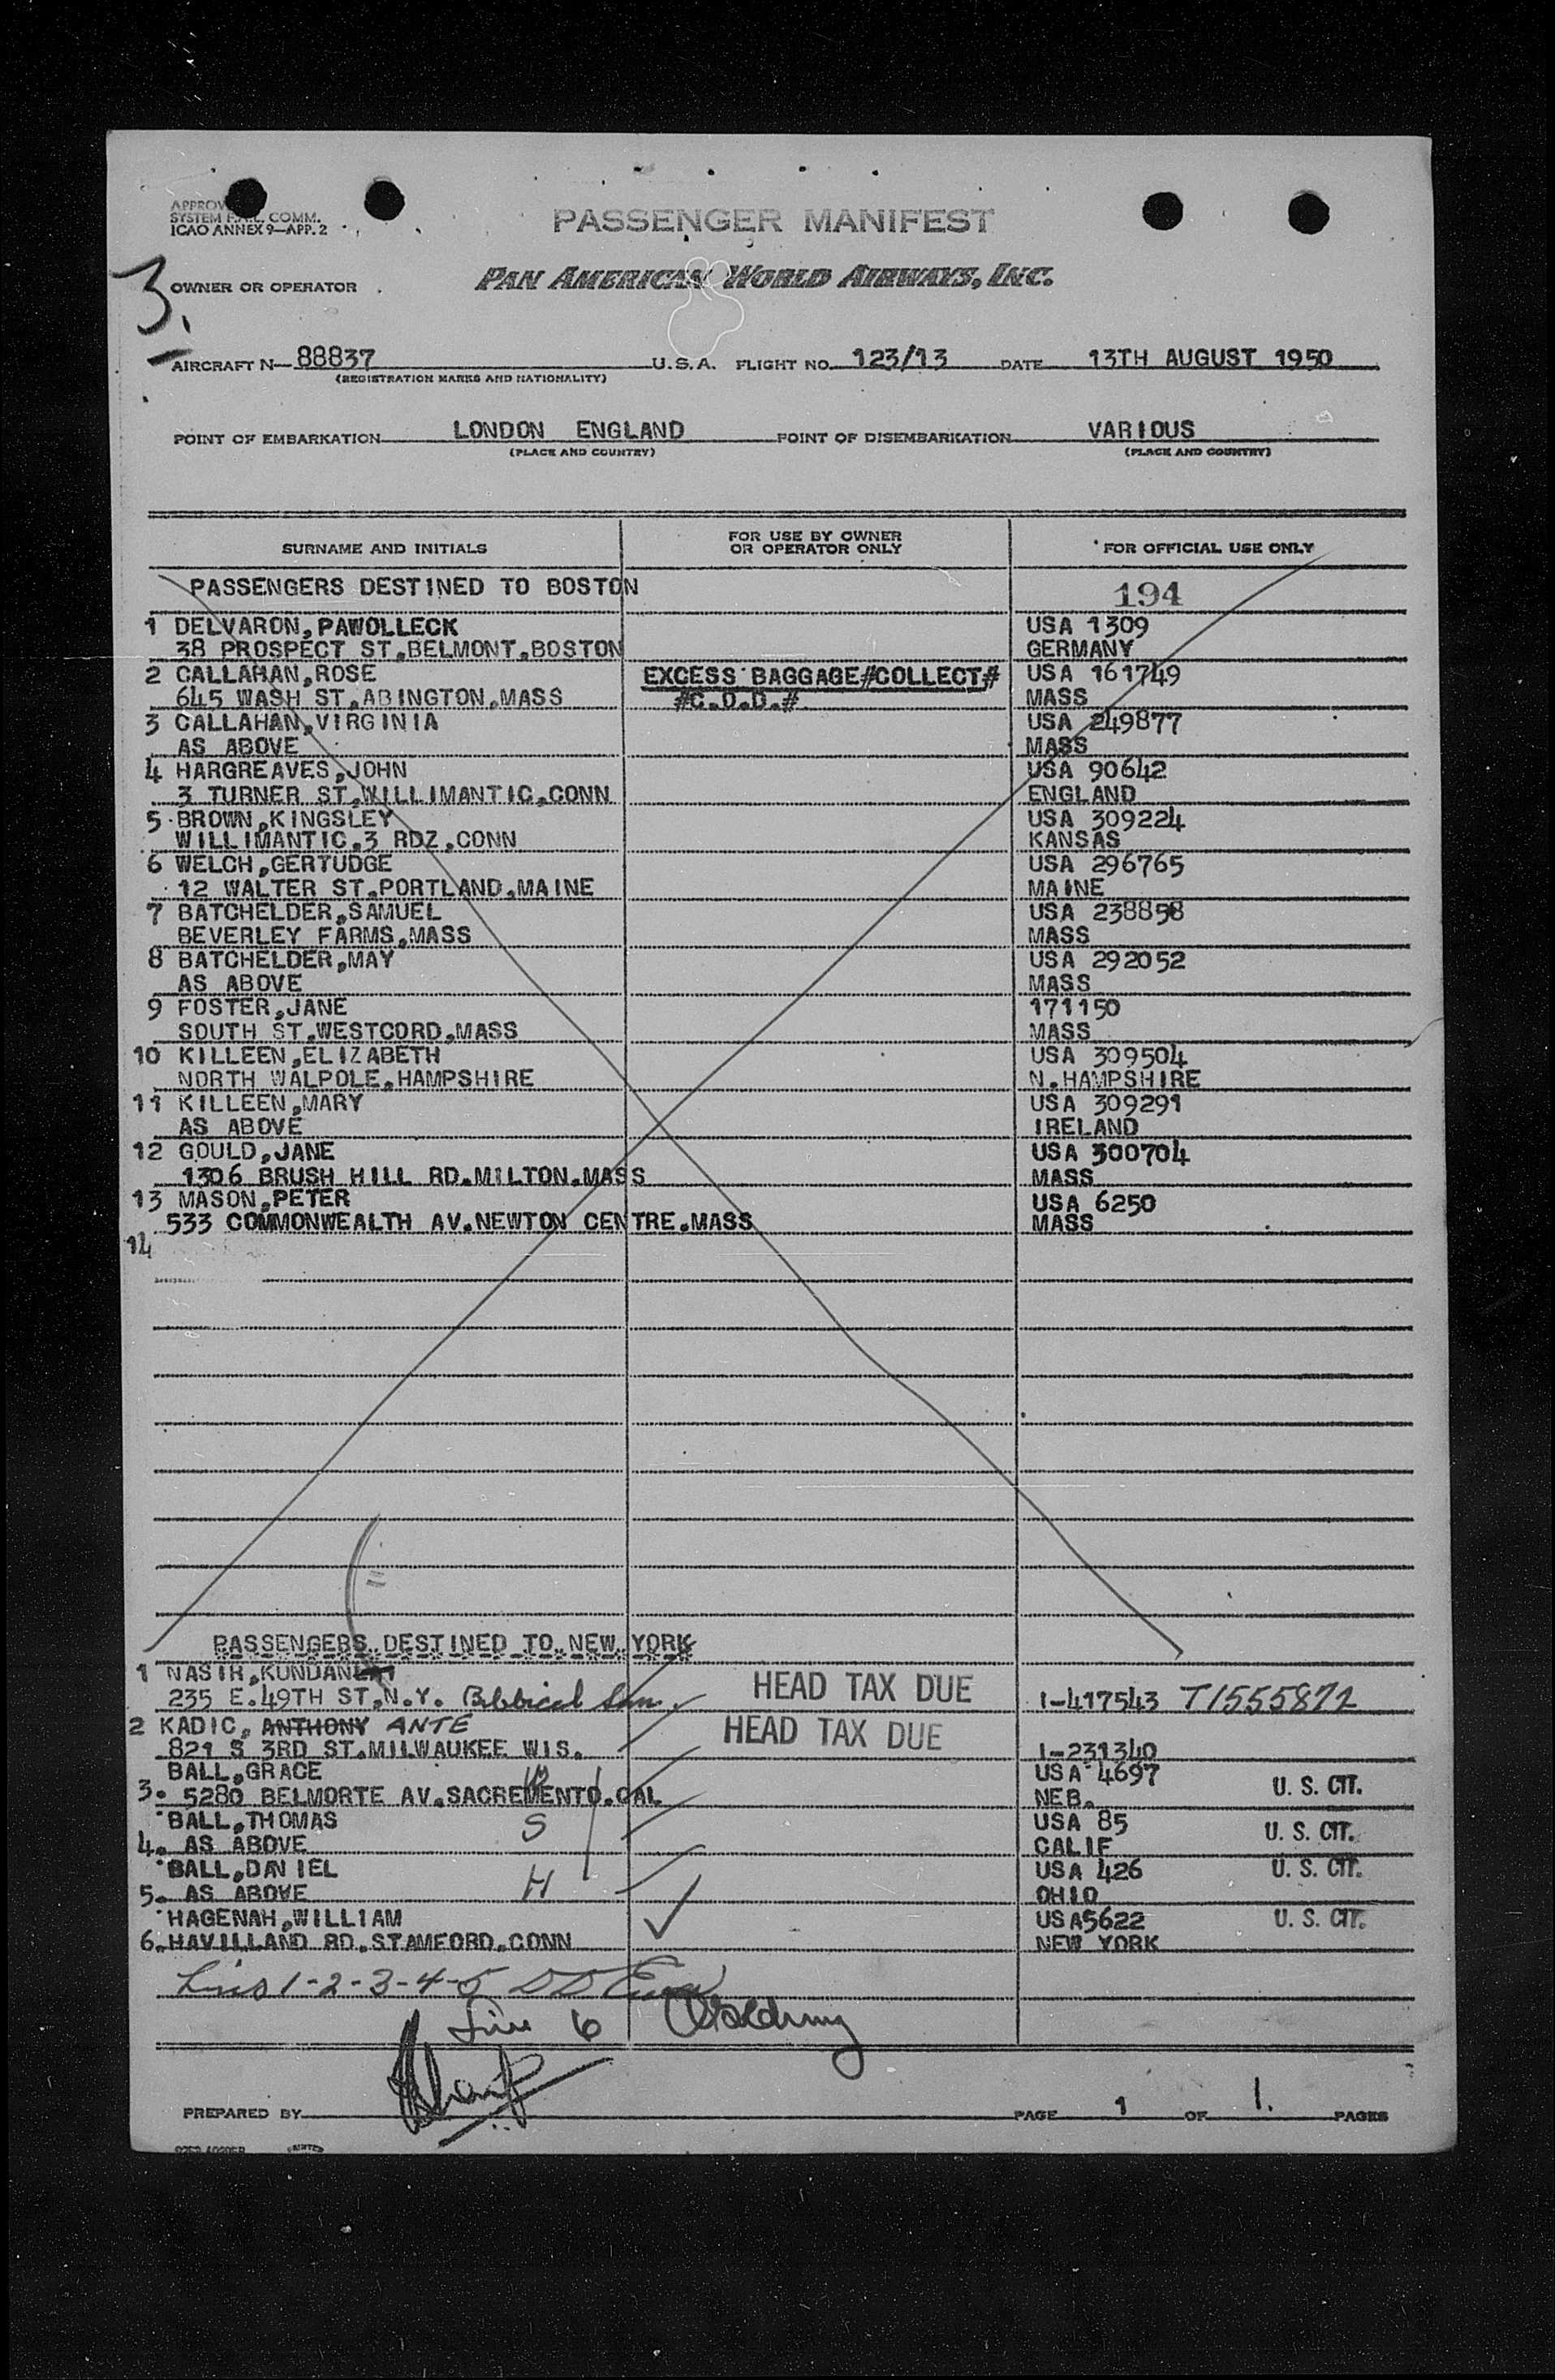 APPROV
SYSTEM F.A.L. COMM.
ICAO ANNEX 9—APP. 2
PASSENGER MANIFEST
3.
OWNER OR OPERATOR
PAN AMERICAN WORLD AIRWAYS, INC.
AIRCRAFT N— 88837 U.S.A. FLIGHT NO. 123/13 DATE 13TH AUGUST 1950
(REGISTRATION MARKS AND NATIONALITY)
POINT OF EMBARKATION LONDON ENGLAND POINT OF DISEMBARKATION VARIOUS
(PLACE AND COUNTRY) (PLACE AND COUNTRY)
SURNAME AND INITIALS FOR USE BY OWNER OR OPERATOR ONLY FOR OFFICIAL USE ONLY
PASSENGERS DESTINED TO BOSTON 194
1 DELVARON,PAWOLLECK USA 1309
38 PROSPECT ST.BELMONT.BOSTON GERMANY
2 CALLAHAN,ROSE EXCESS BAGGAGE#COLLECT# USA 161749
645 WASH ST.ABINGTON.MASS #C.O.D.# MASS
3 CALLAHAN,VIRGINIA USA 249877
AS ABOVE MASS
4 HARGREAVES,JOHN USA 90642
3 TURNER ST.WILLIMANTIC.CONN ENGLAND
5 BROWN,KINGSLEY USA 309224
WILLIMANTIC.3 RDZ.CONN KANSAS
6 WELCH,GERTUDGE USA 296765
12 WALTER ST.PORTLAND.MAINE MAINE
7 BATCHELDER,SAMUEL USA 238858
BEVERLEY FARMS.MASS MASS
8 BATCHELDER,MAY USA 292052
AS ABOVE MASS
9 FOSTER,JANE 171150
SOUTH ST.WESTCORD.MASS MASS
10 KILLEEN,ELIZABETH USA 309504
NORTH WALPOLE.HAMPSHIRE N.HAMPSHIRE
11 KILLEEN,MARY USA 309291
AS ABOVE IRELAND
12 GOULD,JANE USA 300704
1306 BRUSH HILL RD.MILTON.MASS MASS
13 MASON,PETER USA 6250
533 COMMONWEALTH AV.NEWTON CENTRE.MASS MASS
14
PASSENGERS DESTINED TO NEW YORK
1 NASIR,KUNDANLAI HEAD TAX DUE
235 E.49TH ST.N.Y. Bibbical Sem. I-417543 T1555872
2 KADIC, ANTHONY ANTE HEAD TAX DUE
821 S 3RD ST.MILWAUKEE WIS. I-231340
BALL,GRACE W USA 4697
3. 5280 BELMORTE AV.SACREMENTO.CAL NEB. U. S. CIT.
BALL,THOMAS S USA 85
4. AS ABOVE CALIF U. S. CIT.
BALL,DANIEL H USA 426 U. S. CIT.
5. AS ABOVE OHIO
HAGENAH,WILLIAM USA5622 U. S. CIT.
6. HAVILLAND RD.STAMFORD.CONN NEW YORK
Lines 1-2-3-4-5
Line 6
PREPARED BY PAGE 1 OF 1. PAGES